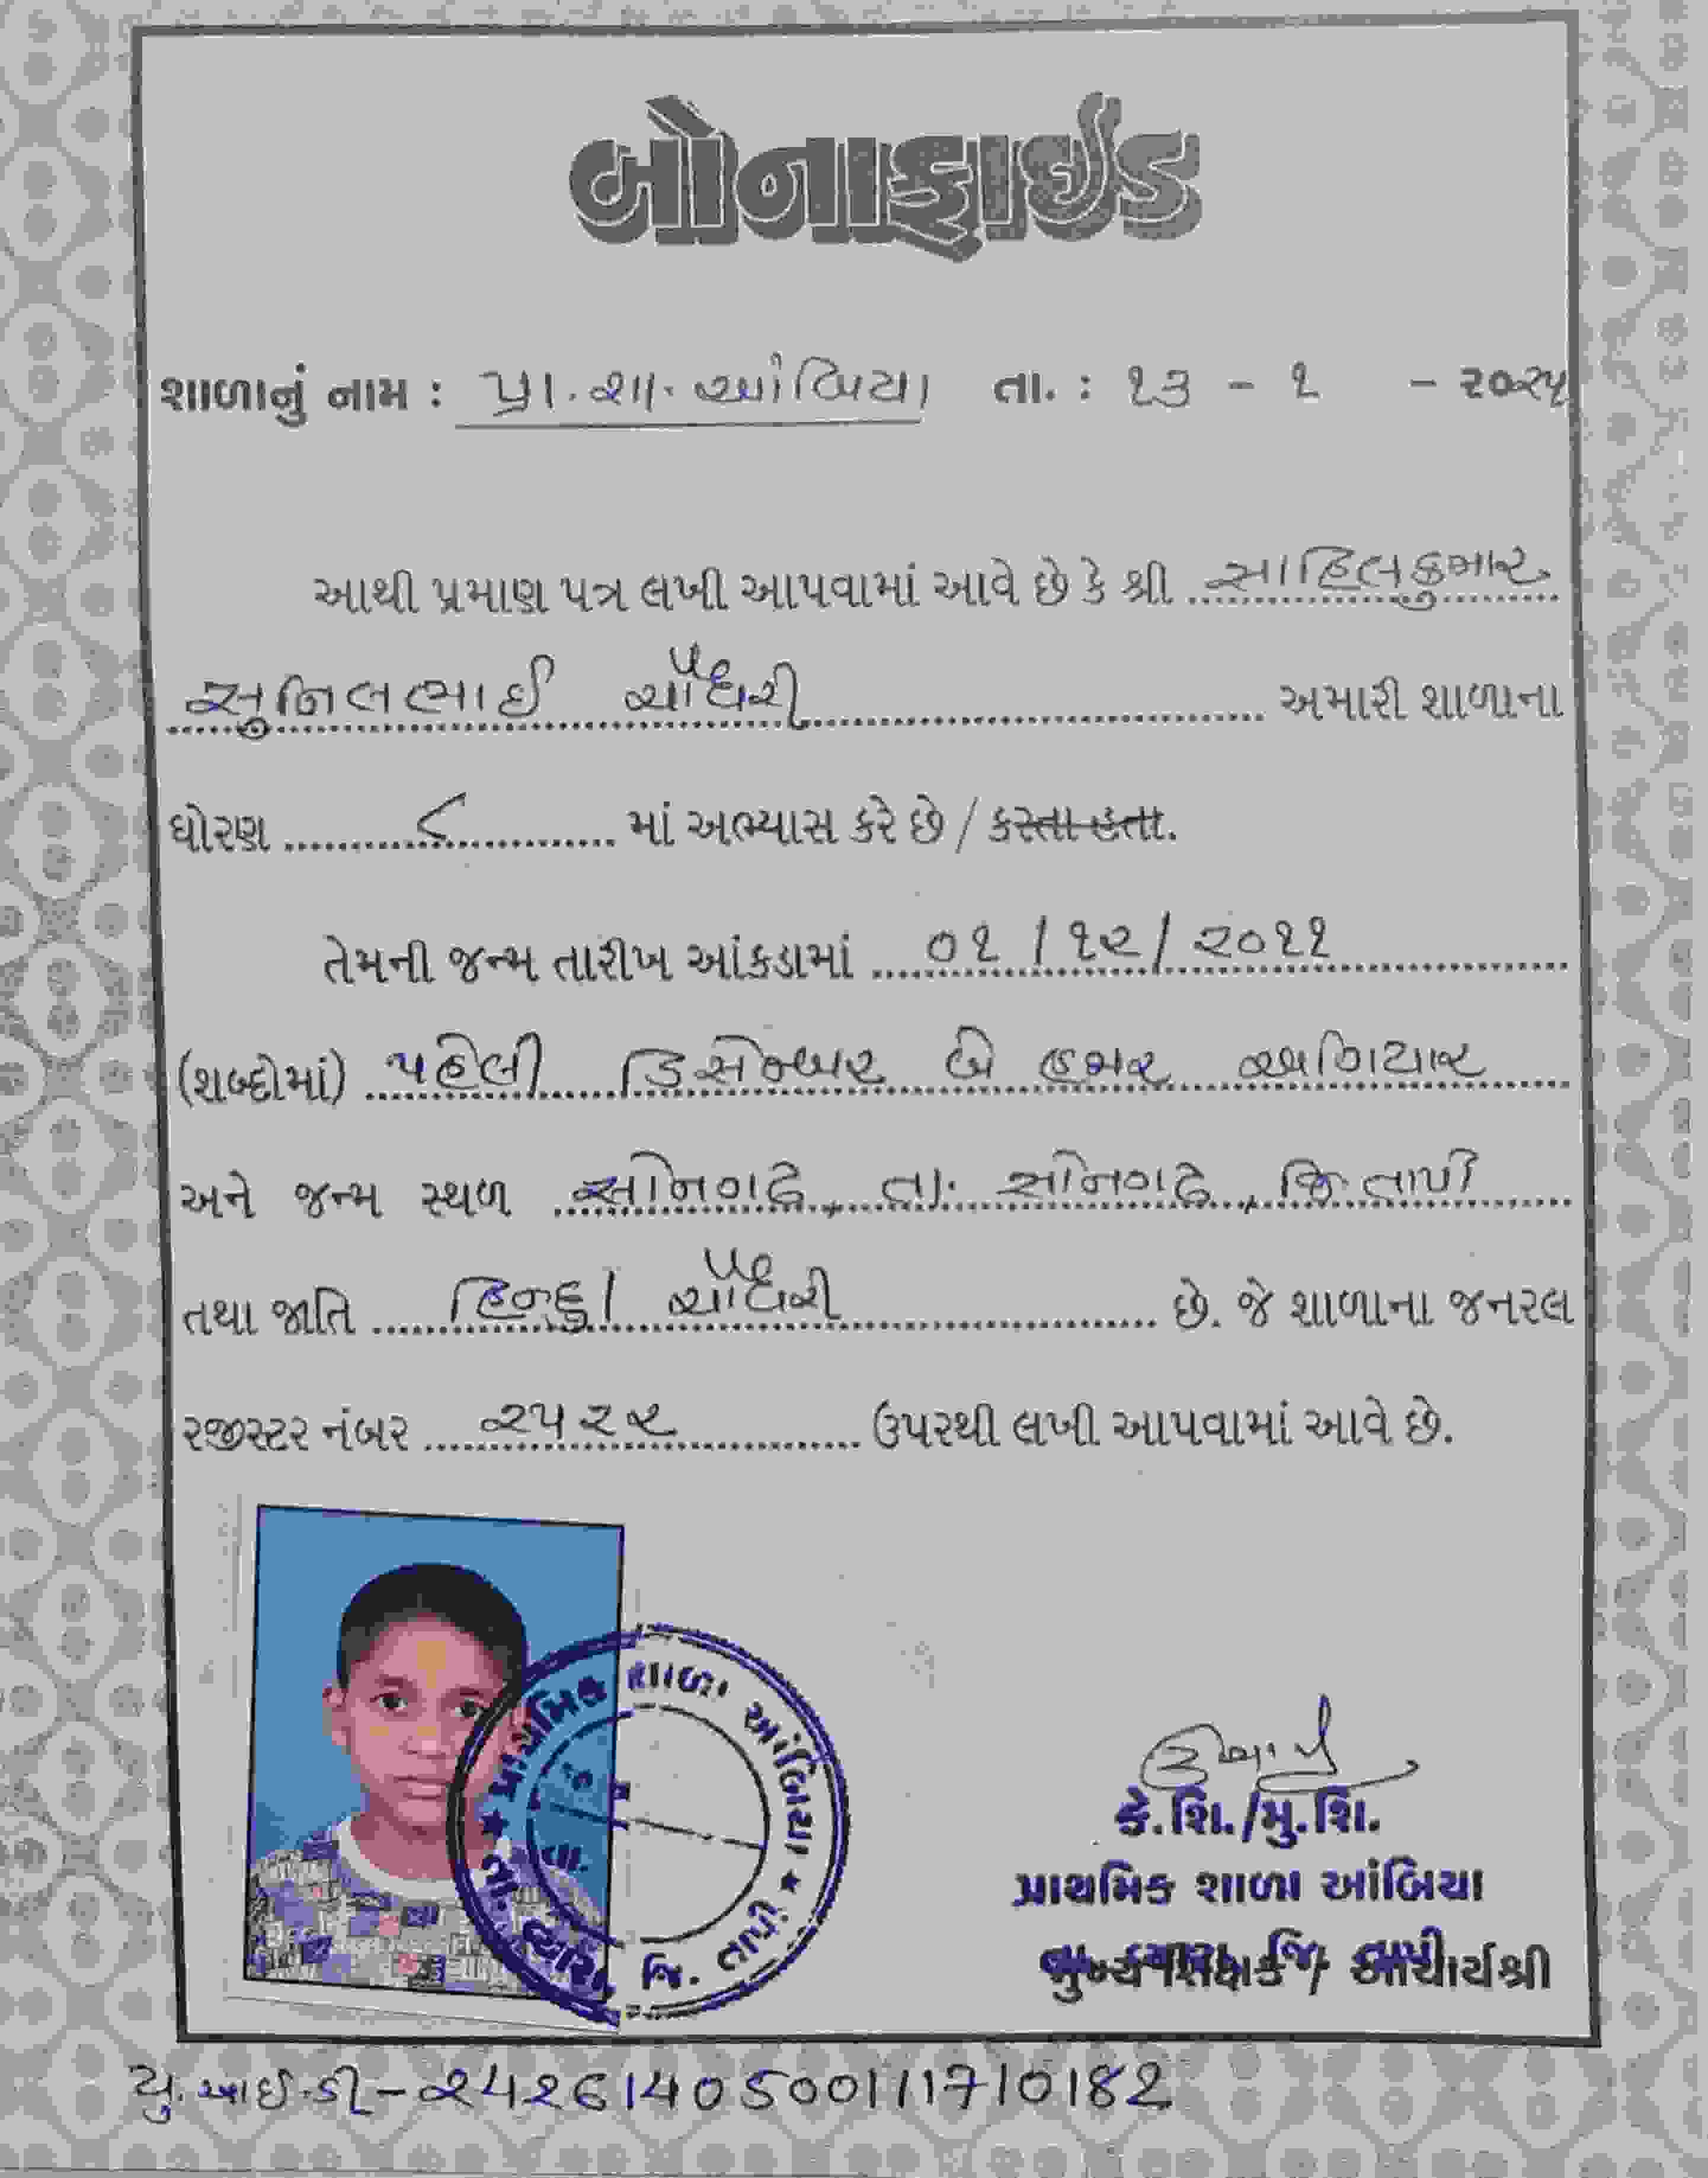 બોનાફાઈડ
શાળાનું નામ : પ્રા. શા. આંબિયા તા. : ૧૩ - ૧ - ૨૦૨૫
આથી પ્રમાણ પત્ર લખી આપવામાં આવે છે કે શ્રી સાહિલકુમાર
સુનિલભાઈ ચૌધરી અમારી શાળાના
ધોરણ ૮ માં અભ્યાસ કરે છે / કરતા હતા.
તેમની જન્મ તારીખ આંકડામાં ૦૧ / ૧૨ / ૨૦૧૧
(શબ્દોમાં) પહેલી ડિસેમ્બર બે હજાર અગિયાર
અને જન્મ સ્થળ સોનગઢ, તા. સોનગઢ, જિ. તાપી
તથા જાતિ હિન્દુ / ચૌધરી છે. જે શાળાના જનરલ
રજીસ્ટર નંબર ૨૫૨૨ ઉપરથી લખી આપવામાં આવે છે.
પ્રાથમિક શાળા આંબિયા
તા. જિ. તાપી
કે.શિ./મુ.શિ.
પ્રાથમિક શાળા આંબિયા
મુખ્ય શિક્ષક / આચાર્યશ્રી
યુ. આઈ. ડી - ૨4૨6140500111710182